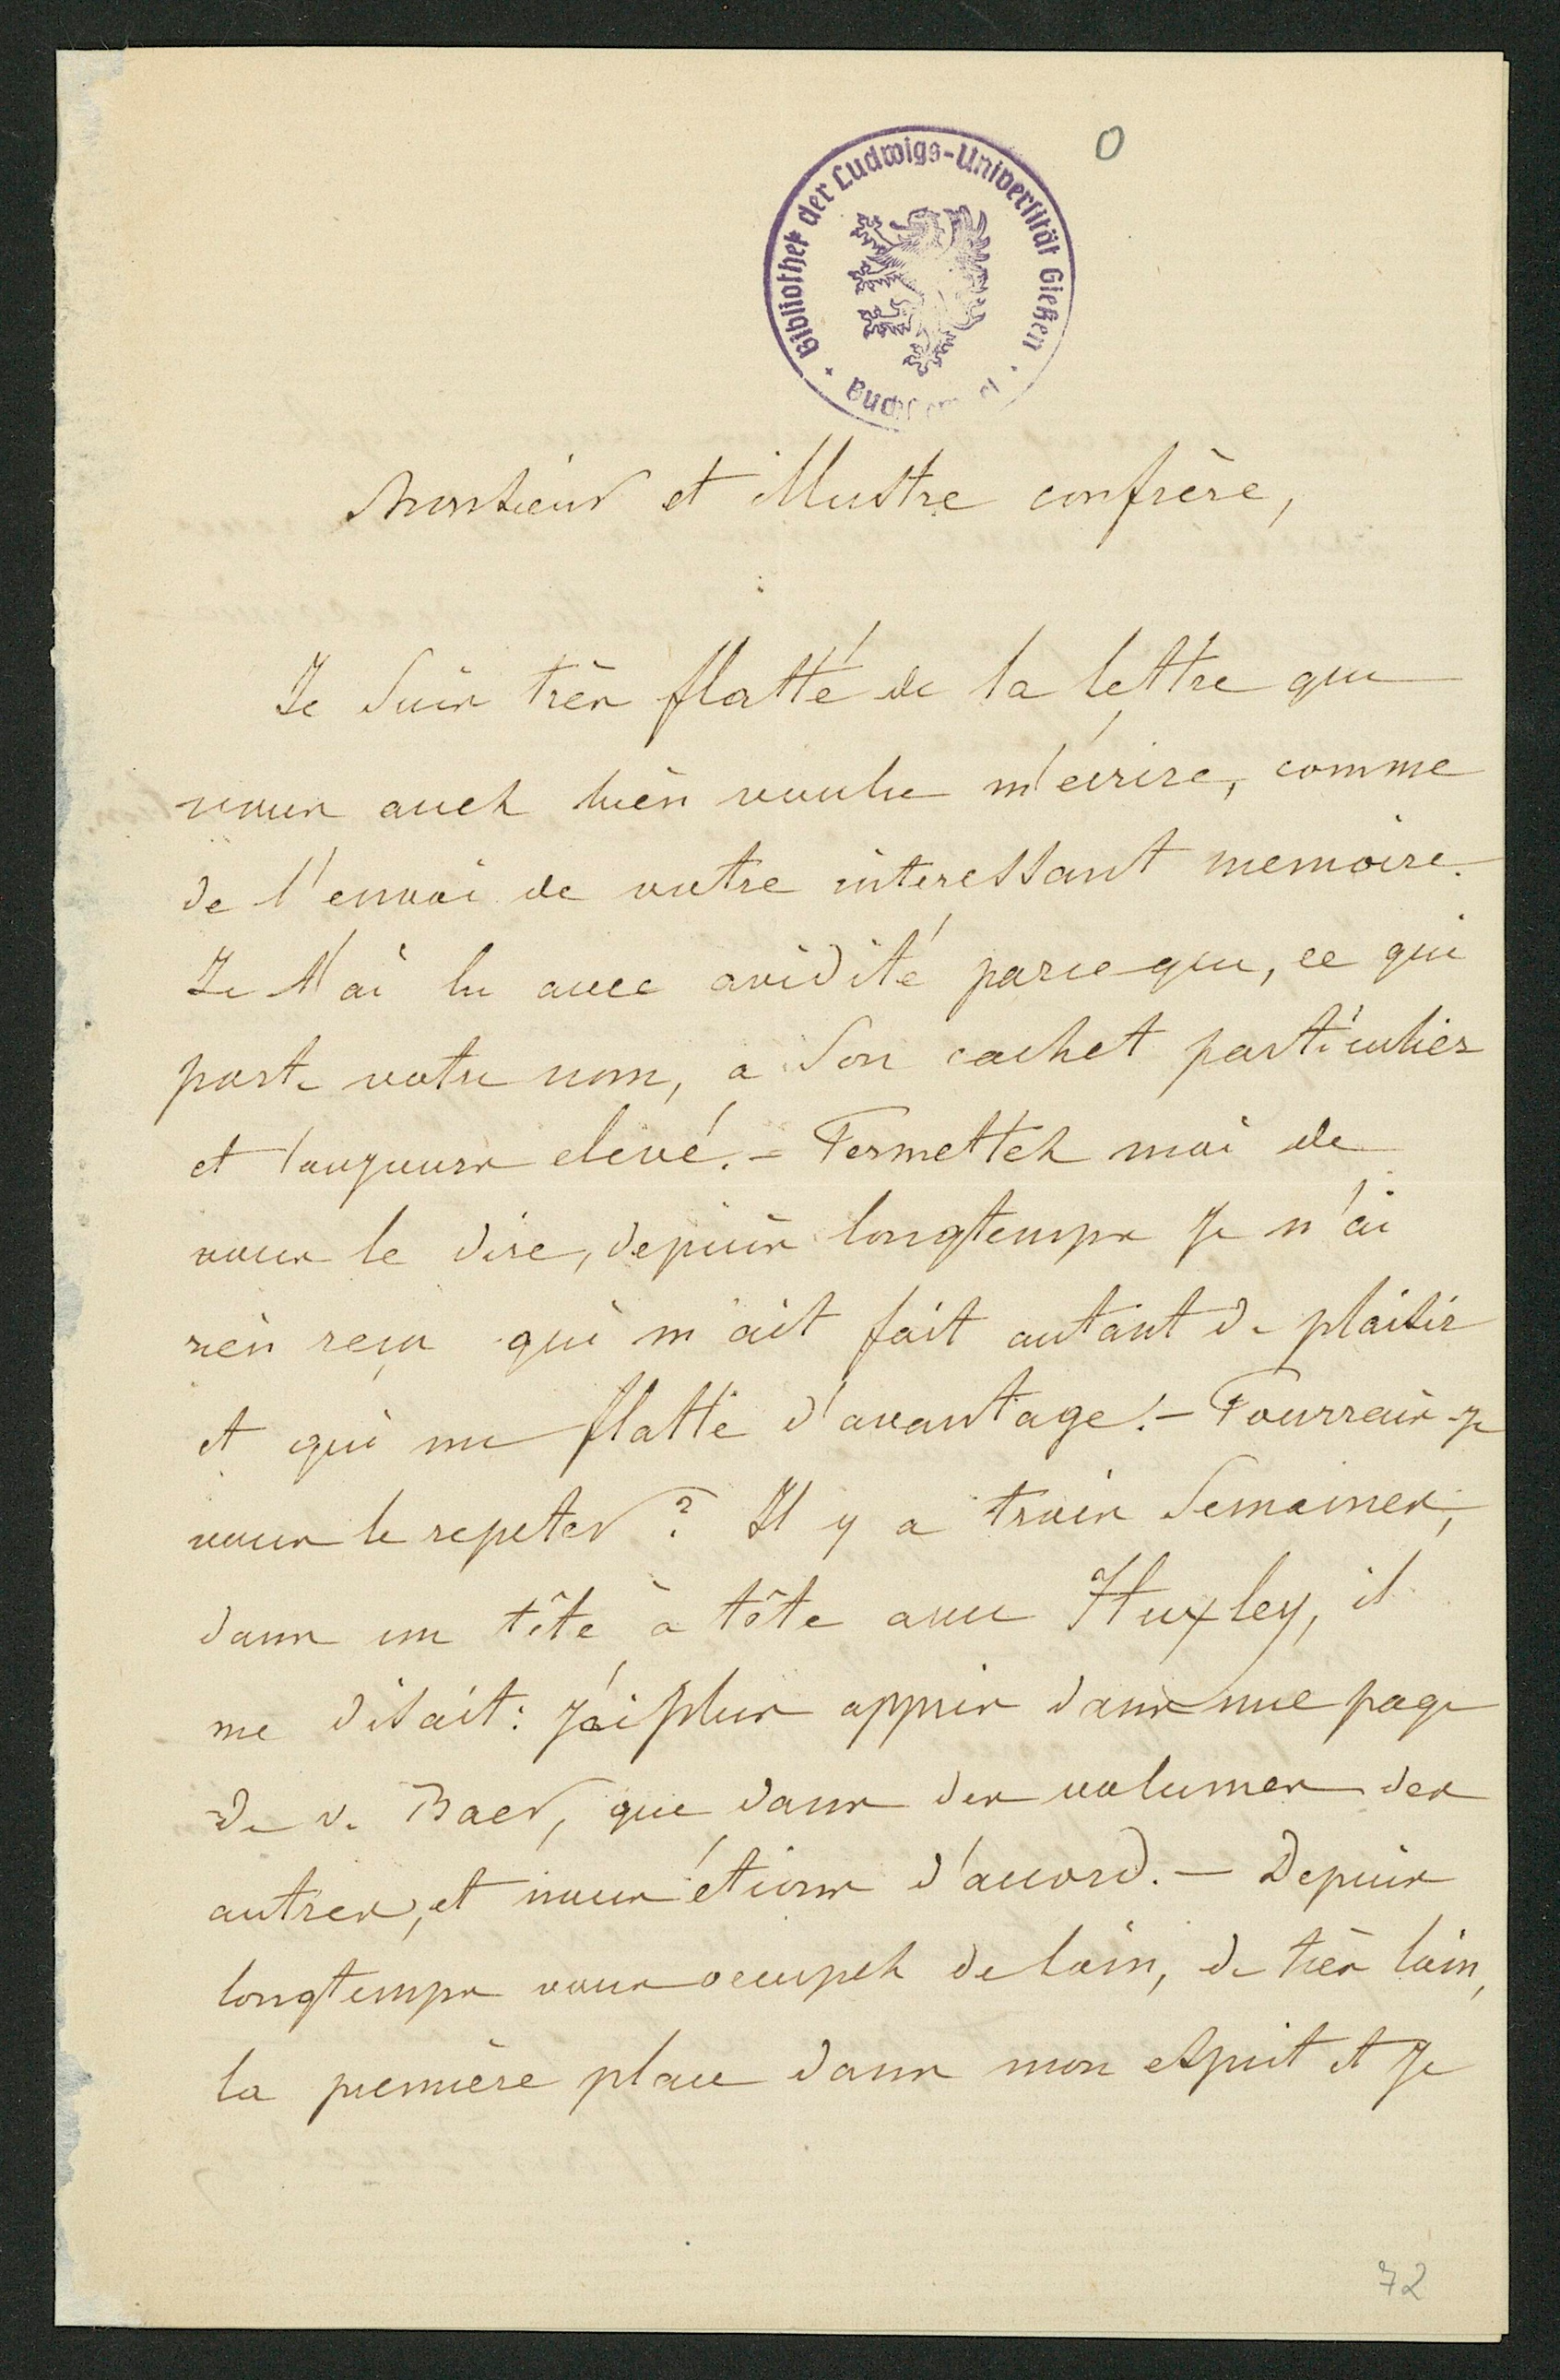 O
Bibliothek der Ludwigs-Universität Gießen
Monsieur et illustre confrère,
Je suis très flatté de la lettre que
vous avez bièn voulu m'écrire, comme
de l'envoi de votre interessant memoire.
Je l'ai lu avec avidité parceque, ce qui
porte votre nom, a son cachet particulier
et toujours elevé. - Permettez moi de
vous le dire, depuis longtemps je n'ai
rièn reçu qui m'ait fait autant de plaisir
et qui me flatte d'avantage. - Pourrais-je
vous le repeter? Il y a trois semaines,
dans un tête à tête avec Huxley, il
me disait: j'ai plus appris dans une page
de v. Baer, que dans des volumes des
autres, et nous étions d'accord. - Depuis
longtemps vous occupez de loin, de très loin,
la première place dans mon esprit et je
72